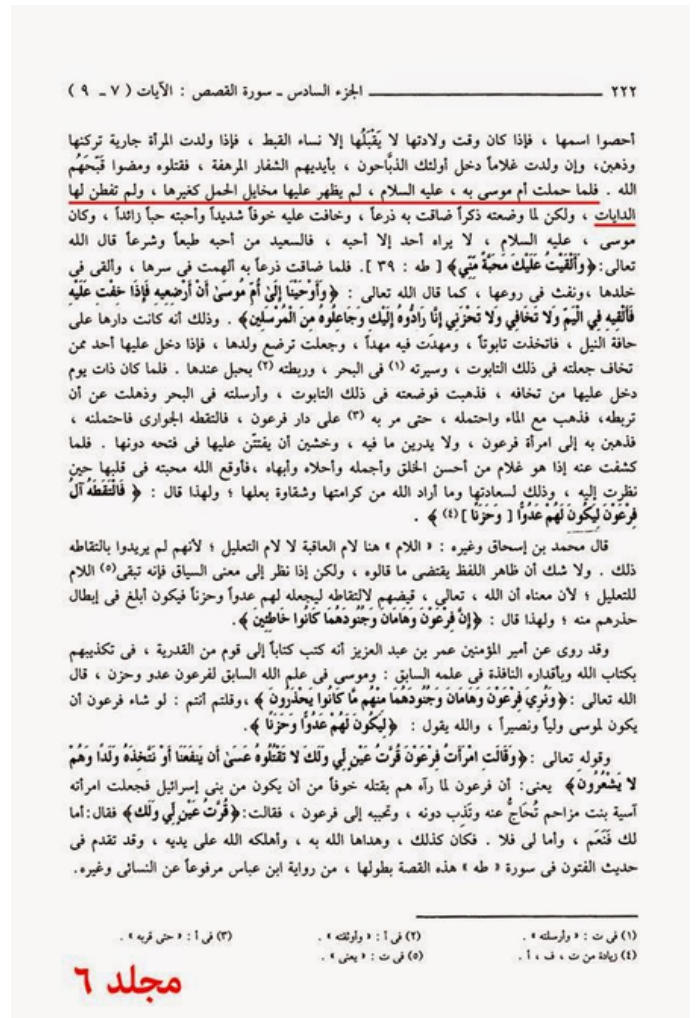 ٢٢٢ ــــــ الجزء السادس ـ سورة القصص : الآيات ( ٧ ـ ٩ )
أحصوا اسمها ، فإذا كان وقت ولادتها لا يَقْبَلُها إلا نساء القبط ، فإذا ولدت المرأة جارية تركنها
وذهبن، وإن ولدت غلاماً دخل أولئك الذبَّاحون ، بأيديهم الشفار المرهفة ، فقتلوه ومضوا قَبَّحَهُم
الله . فلما حملت أم موسى به ، عليه السلام ، لم يظهر عليها مخايل الحمل كغيرها ، ولم تفطن لها
الدايات ، ولكن لما وضعته ذكراً ضاقت به ذرعاً ، وخافت عليه خوفاً شديداً وأحبته حباً زائداً ، وكان
موسى ، عليه السلام ، لا يراه أحد إلا أحبه ، فالسعيد من أحبه طبعاً وشرعاً قال الله
تعالى:﴿ وَأَلْقَيْتُ عَلَيْكَ مَحَبَّةً مِّنِّي ﴾ [ طه : ٣٩ ]. فلما ضاقت ذرعاً به ألهمت في سرها ، وألقى فى
خلدها ،ونفث فى روعها ، كما قال الله تعالى : ﴿ وَأَوْحَيْنَا إِلَىٰ أُمِّ مُوسَىٰ أَنْ أَرْضِعِيهِ فَإِذَا خِفْتِ عَلَيْهِ
فَأَلْقِيهِ فِي الْيَمِّ وَلا تَخَافِي وَلا تَحْزَنِي إِنَّا رَادُّوهُ إِلَيْكِ وَجَاعِلُوهُ مِنَ الْمُرْسَلِين﴾ . وذلك أنه كانت دارها على
حافة النيل ، فاتخذت تابوتاً ، ومهدّت فيه مهداً ، وجعلت ترضع ولدها ، فإذا دخل عليها أحد ممن
تخاف جعلته فى ذلك التابوت ، وسيرته (١) فى البحر ، وربطته (٢) بحبل عندها . فلما كان ذات يوم
دخل عليها من تخافه ، فذهبت فوضعته فى ذلك التابوت ، وأرسلته فى البحر وذهلت عن أن
تربطه، فذهب مع الماء واحتمله ، حتى مر به (٣) على دار فرعون ، فالتقطه الجوارى فاحتملنه ،
فذهبن به إلى امرأة فرعون ، ولا يدرين ما فيه ، وخشين أن يفتتن عليها فى فتحه دونها . فلما
كشفت عنه إذا هو غلام من أحسن الخلق وأجمله وأحلاه وأبهاه ،فأوقع الله محبته فى قلبها حين
نظرت إليه ، وذلك لسعادتها وما أراد الله من كرامتها وشقاوة بعلها ؛ ولهذا قال : ﴿ فَالْتَقَطَهُ آلُ
فِرْعَوْنَ لِيَكُونَ لَهُمْ عَدُوًّا [ وَحَزَنًا ](٤) ﴾ .
قال محمد بن إسحاق وغيره : « اللام » هنا لام العاقبة لا لام التعليل ؛ لأنهم لم يريدوا بالتقاطه
ذلك . ولا شك أن ظاهر اللفظ يقتضى ما قالوه ، ولكن إذا نظر إلى معنى السياق فإنه تبقى(٥) اللام
للتعليل ؛ لأن معناه أن الله ، تعالى ، قيضهم لالتقاطه ليجعله لهم عدواً وحزناً فيكون أبلغ فى إبطال
حذرهم منه ؛ ولهذا قال : ﴿إِنَّ فِرْعَوْنَ وَهَامَانَ وَجُنُودَهُمَا كَانُوا خَاطِئِين ﴾.
وقد روى عن أمير المؤمنين عمر بن عبد العزيز أنه كتب كتاباً إلى قوم من القدرية ، فى تكذيبهم
بكتاب الله وبأقداره النافذة فى علمه السابق : وموسى فى علم الله السابق لفرعون عدو وحزن ، قال
الله تعالى :﴿ وَنُرِيَ فِرْعَوْنَ وَهَامَانَ وَجُنُودَهُمَا مِنْهُم مَّا كَانُوا يَحْذَرُونَ ﴾ ،وقلتم أنتم : لو شاء فرعون أن
يكون لموسى ولياً ونصيراً ، والله يقول : ﴿لِيَكُونَ لَهُمْ عَدُوًّا وَحَزَنًا ﴾.
وقوله تعالى :﴿ وَقَالَتِ امْرَأَتُ فِرْعَوْنَ قُرَّتُ عَيْنٍ لِي وَلَكَ لا تَقْتُلُوهُ عَسَىٰ أَن يَنفَعَنَا أَوْ نَتَّخِذَهُ وَلَدًا وَهُمْ
لا يَشْعُرُونَ﴾ يعنى: أن فرعون لما رآه هم بقتله خوفاً من أن يكون من بنى إسرائيل فجعلت امرأته
آسية بنت مزاحم تُحَاجُّ عنه وتَذب دونه ، وتحببه إلى فرعون ، فقالت:﴿ قُرَّتُ عَيْنٍ لِي وَلَك﴾ فقال:أما
لك فَنَعَم ، وأما لى فلا . فكان كذلك ، وهداها الله به ، وأهلكه الله على يديه ، وقد تقدم فى
حديث الفتون فى سورة « طه » هذه القصة بطولها ، من رواية ابن عباس مرفوعاً عن النسائى وغيره.
(١) فى ت : « وأرسلته » . (٢) فى أ : « وأوثقته » . (٣) فى أ : « حتى قربه » .
(٤) زيادة من ت ، ف ، أ . (٥) فى ت : « يعنى » .
مجلد ٦